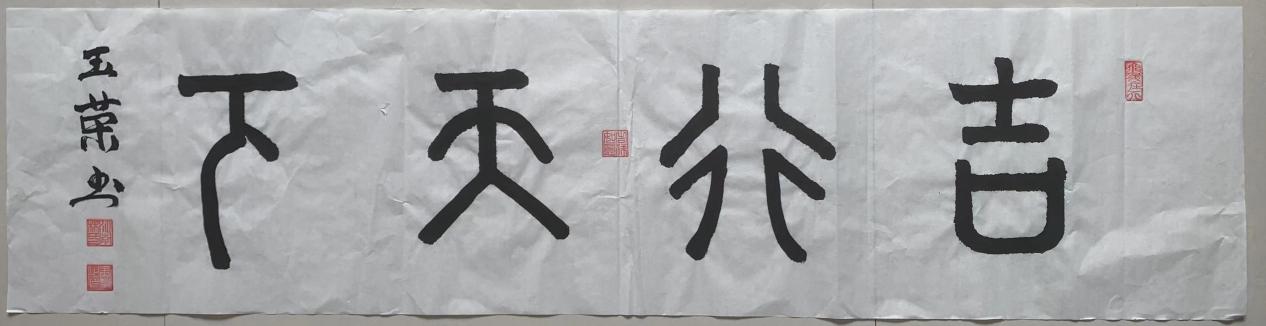 吉行天下
玉荣书